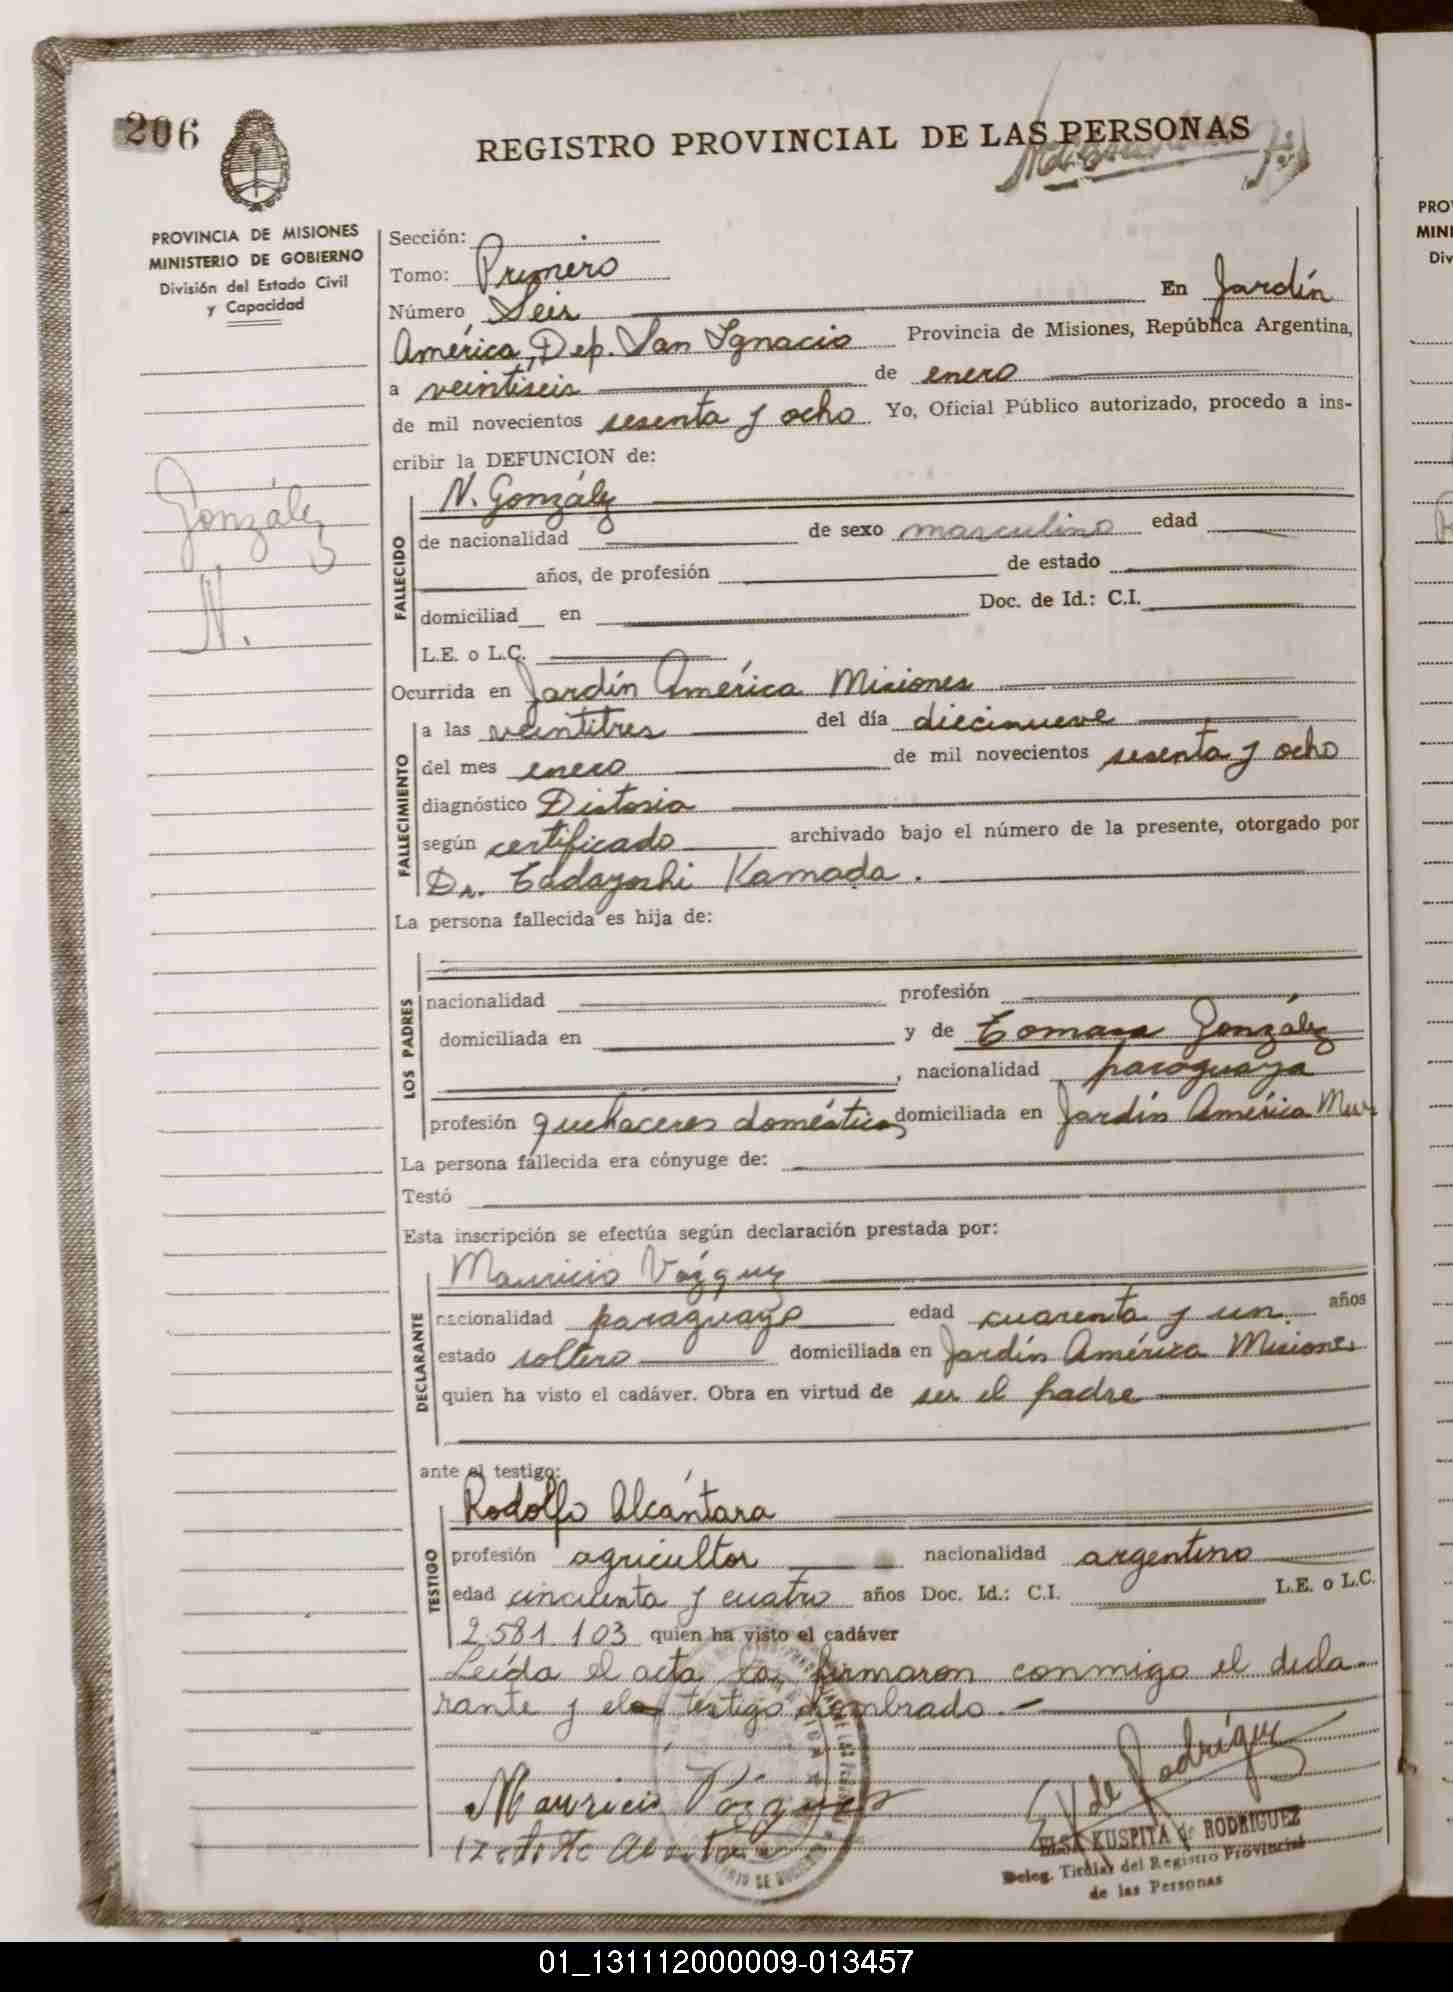 206
REGISTRO PROVINCIAL DE LAS PERSONAS
PROVINCIA DE MISIONES
MINISTERIO DE GOBIERNO
División del Estado Civil
y Capacidad
González
N.
Sección:
Tomo: Primero
Número Seis En Jardín
América, Dep. San Ignacio Provincia de Misiones, República Argentina,
a veintiseis de enero
de mil novecientos sesenta y ocho Yo, Oficial Público autorizado, procedo a ins-
cribir la DEFUNCION de:
FALLECIDO
N. González
de nacionalidad de sexo masculino edad
años, de profesión de estado
domiciliad en Doc. de Id.: C.I.
L.E. o L.C.
Ocurrida en Jardín América Misiones
FALLECIMIENTO
a las veintitres del día diecinueve
del mes enero de mil novecientos sesenta y ocho
diagnóstico Distosia
según certificado archivado bajo el número de la presente, otorgado por
Dr. Tadayoshi Kamada.
La persona fallecida es hija de:
LOS PADRES
nacionalidad profesión
domiciliada en y de Tomasa González
, nacionalidad paraguaya
profesión quehaceres domésticos domiciliada en Jardín América
La persona fallecida era cónyuge de:
Testó
Esta inscripción se efectúa según declaración prestada por:
DECLARANTE
Mauricio Vázquez
nacionalidad paraguayo edad cuarenta y un años
estado soltero domiciliada en Jardín América Misiones
quien ha visto el cadáver. Obra en virtud de ser el padre
ante el testigo:
TESTIGO
Rodolfo Alcántara
profesión agricultor nacionalidad argentino
edad cincuenta y cuatro años Doc. Id.: C.I. L.E. o L.C.
2581103 quien ha visto el cadáver
Leída el acta la firmaron conmigo el decla-
rante y el testigo nombrado.-
Mauricio Vázquez
E K de Rodríguez
ELSA KUSPITA de RODRIGUEZ
Deleg. Titular del Registro Provincial
de las Personas
PRO
MINI
Div
01_131112000009-013457